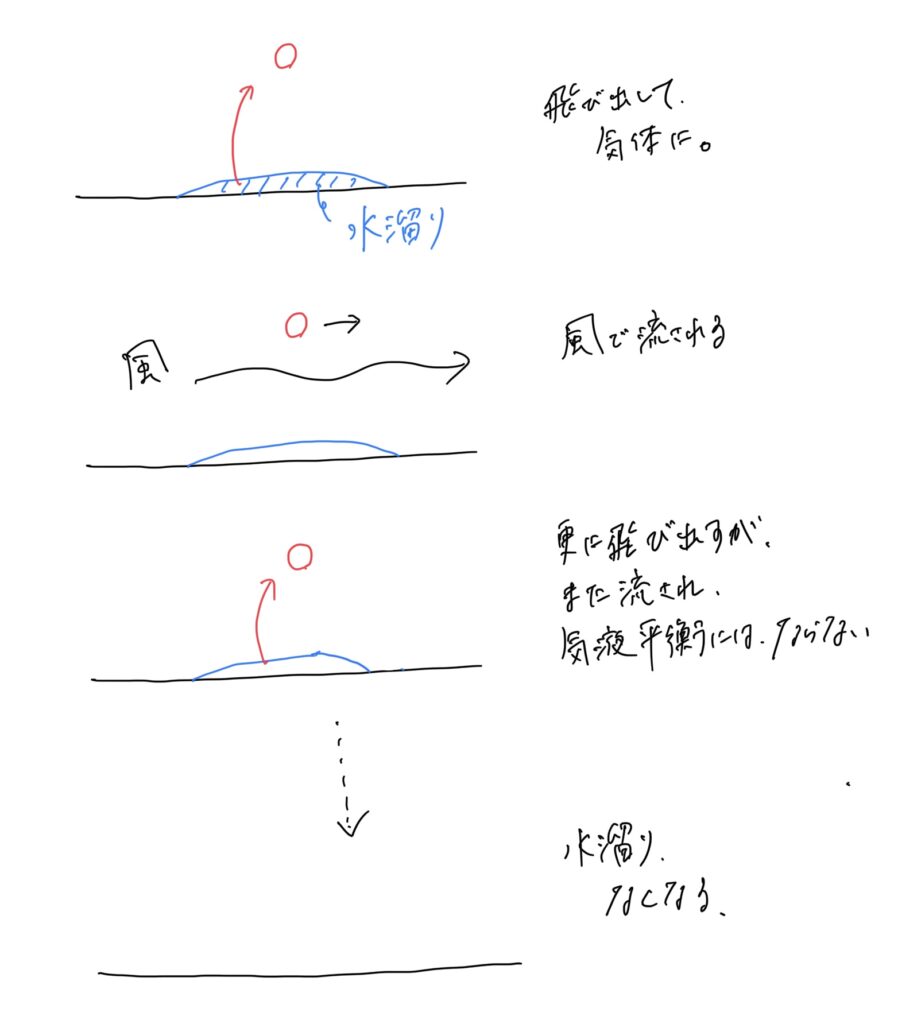 飛び出して、
気体に。
水溜り
風
風で流される
更に飛び出すが、
また流され、
気液平衡には、ならない
水溜り、
なくなる、